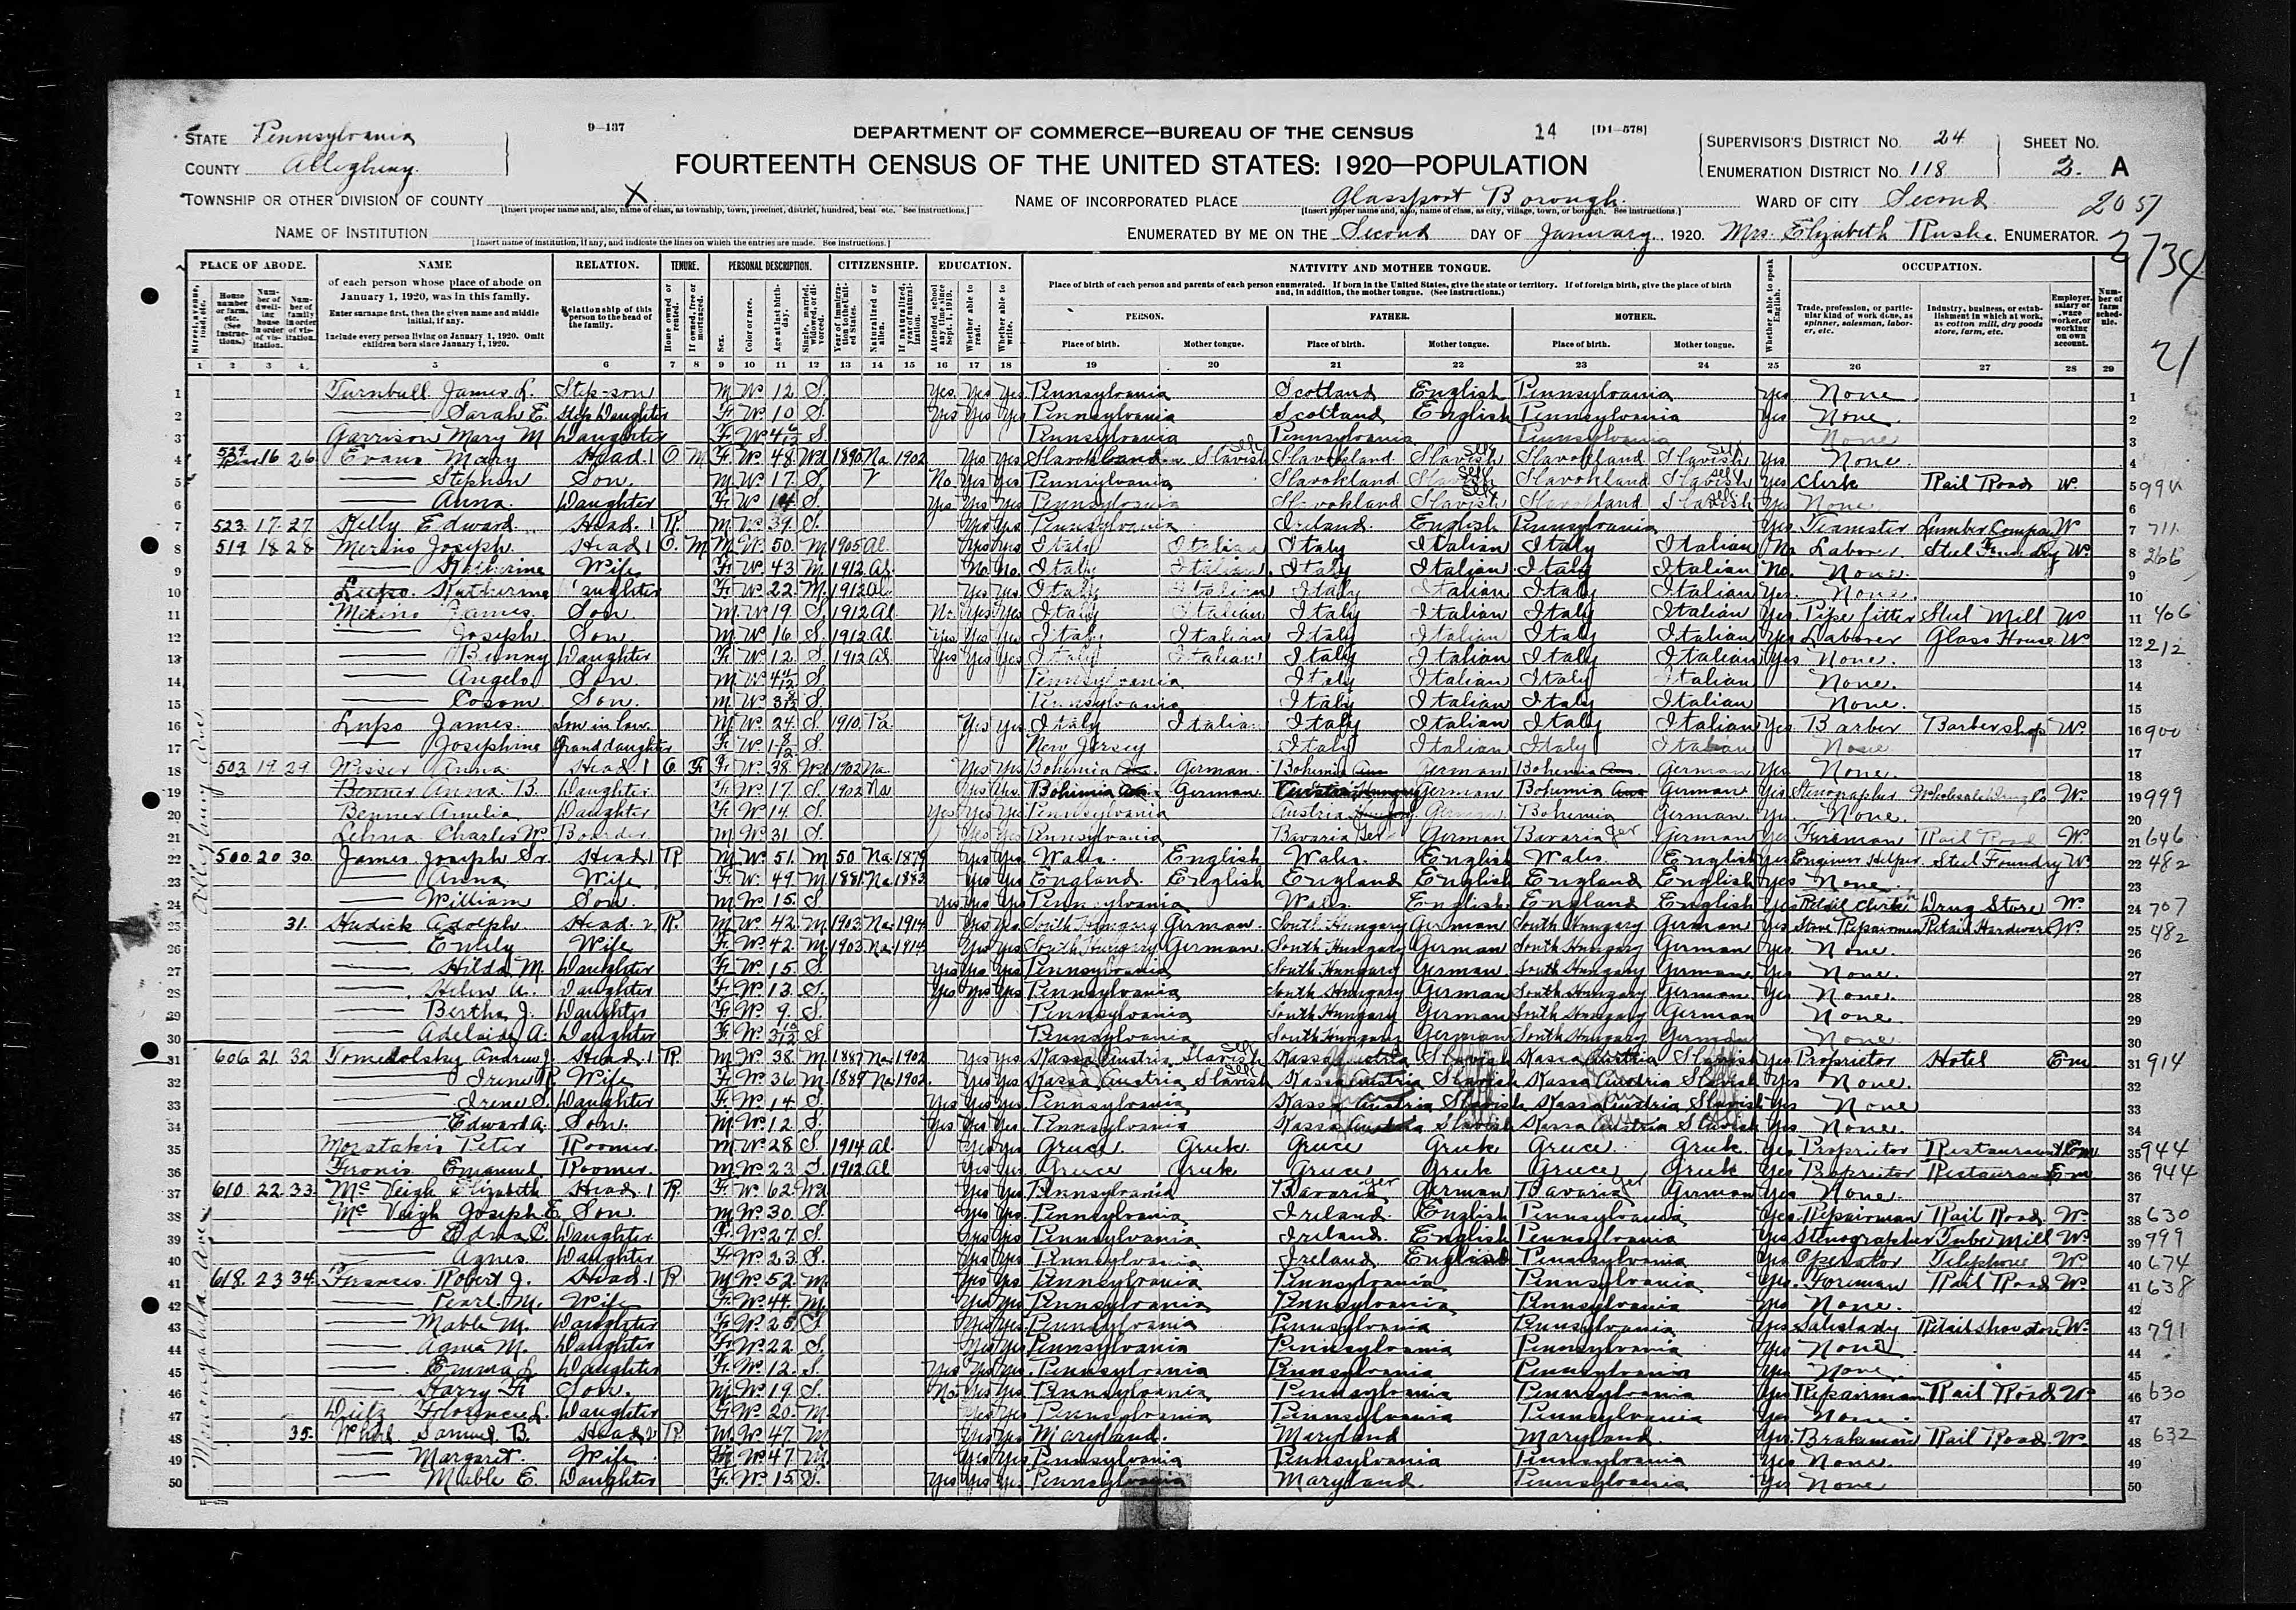 9—137
DEPARTMENT OF COMMERCE—BUREAU OF THE CENSUS
14 [D1—578]
STATE Pennsylvania
COUNTY Allegheny
FOURTEENTH CENSUS OF THE UNITED STATES: 1920—POPULATION
SUPERVISOR'S DISTRICT No. 24
SHEET No.
ENUMERATION DISTRICT No. 118
A
TOWNSHIP OR OTHER DIVISION OF COUNTY X
NAME OF INCORPORATED PLACE Glassport Borough
WARD OF CITY Second
NAME OF INSTITUTION
[Insert name of institution, if any, and indicate the lines on which the entries are made. See instructions.]
ENUMERATED BY ME ON THE Second DAY OF January, 1920. Mrs. Elizabeth ENUMERATOR.
2734
21
PLACE OF ABODE. NAME RELATION. TENURE. PERSONAL DESCRIPTION. CITIZENSHIP. EDUCATION. NATIVITY AND MOTHER TONGUE. OCCUPATION.
of each person whose place of abode on January 1, 1920, was in this family.
Enter surname first, then the given name and middle initial, if any.
Include every person living on January 1, 1920. Omit children born since January 1, 1920.
Relationship of this person to the head of the family.
Place of birth of each person and parents of each person enumerated. If born in the United States, give the state or territory. If of foreign birth, give the place of birth and, in addition, the mother tongue. (See instructions.)
PERSON. FATHER. MOTHER.
Place of birth. Mother tongue. Place of birth. Mother tongue. Place of birth. Mother tongue.
1 2 3 4 5 6 7 8 9 10 11 12 13 14 15 16 17 18 19 20 21 22 23 24 25 26 27 28 29
1 Turnbull James L. Step-son M W 12 S Yes Yes Yes Pennsylvania Scotland English Pennsylvania Yes None 1
2 Sarah E. Step Daughter F W 10 S Yes Yes Yes Pennsylvania Scotland English Pennsylvania Yes None 2
3 Garrison Mary M Daughter F W S Pennsylvania Pennsylvania Pennsylvania None 3
4 16 26 Evans Mary Head 1 O M F W 48 Wd 1890 Na 1902 Yes Yes Slavokland Slavish Slavokland Slavish Slavokland Slavish Yes None 4
5 Stephen Son M W 17 S No Yes Yes Pennsylvania Slavokland Slavish Slavokland Slavish Yes Clerk Rail Road W 5
6 Anna Daughter F W 14 S Yes Yes Yes Pennsylvania Slavokland Slavish Slavokland Slavish Yes None 6
7 523 17 27 Kelly Edward Head 1 R M W 39 S Yes Yes Pennsylvania Ireland English Pennsylvania Yes Teamster Lumber Compa W 7 711
8 519 18 28 Merino Joseph Head 1 O M M W 50 M 1905 Al Yes Yes Italy Italian Italy Italian Italy Italian No Laborer Steel Foundry W 8 266
9 Katherine Wife F W 43 M 1912 Al No No Italy Italian Italy Italian Italy Italian No None 9
10 Lupo Katherine Daughter F W 22 M 1912 Al Yes Yes Italy Italian Italy Italian Italy Italian Yes None 10
11 Merino James Son M W 19 S 1912 Al No Yes Yes Italy Italian Italy Italian Italy Italian Yes Pipe fitter Steel Mill W 11 406
12 Joseph Son M W 16 S 1912 Al Yes Yes Yes Italy Italian Italy Italian Italy Italian Yes Laborer Glass House W 12 212
13 Bunny Daughter F W 12 S 1912 Al Yes Yes Yes Italy Italian Italy Italian Italy Italian Yes None 13
14 Angelo Son M W S Pennsylvania Italy Italian Italy Italian None 14
15 Cosom Son M W S Pennsylvania Italy Italian Italy Italian None 15
16 Lupo James Son in law M W 24 S 1910 Pa Yes Yes Italy Italian Italy Italian Italy Italian Yes Barber Barbershop W 16 900
17 Josephine Granddaughter F W S New Jersey Italy Italian Italy Italian None 17
18 503 19 29 Anna Head 1 O F F W 38 Wd 1902 Na Yes Yes Bohemia German Bohemia German Bohemia German Yes None 18
19 Benner Anna B. Daughter F W 17 S 1902 Na Yes Yes Bohemia German German Bohemia German Yes Stenographer W 19 999
20 Benner Amelia Daughter F W 14 S Yes Yes Yes Pennsylvania Austria German Bohemia German Yes None 20
21 Charles W. Boarder M W 31 S Yes Yes Pennsylvania Bavaria Ger German Bavaria Ger German Yes Fireman Rail Road W 21 646
22 500 20 30 James Joseph Sr. Head 1 R M W 51 M 50 Na 1879 Yes Yes Wales English Wales English Wales English Yes Engineer Helper Steel Foundry W 22 482
23 Anna Wife F W 49 M 1881 Na 1883 Yes Yes England English England English England English Yes None 23
24 William Son M W 15 S Yes Yes Yes Pennsylvania Wales English England English Yes Retail Clerk Drug Store W 24 707
25 31 Hudick Adolph Head 2 R M W 42 M 1903 Na 1914 Yes Yes South Hungary German South Hungary German South Hungary German Yes Stove Repairman Retail Hardware W 25 482
26 Emily Wife F W 42 M 1903 Na 1914 Yes Yes South Hungary German South Hungary German South Hungary German Yes None 26
27 Hilda M. Daughter F W 15 S Yes Yes Yes Pennsylvania South Hungary German South Hungary German Yes None 27
28 Helen A. Daughter F W 13 S Yes Yes Yes Pennsylvania South Hungary German South Hungary German Yes None 28
29 Bertha J. Daughter F W 9 S Pennsylvania South Hungary German South Hungary German None 29
30 Adelaide A. Daughter F W S Pennsylvania South Hungary German South Hungary German None 30
31 606 21 32 Tomedolsky Andrew J. Head 1 R M W 38 M 1887 Na 1902 Yes Yes Kassa Austria Slavish Kassa Austria Slavish Kassa Austria Slavish Yes Proprietor Hotel Em 31 914
32 Irene P. Wife F W 36 M 1889 Na 1902 Yes Yes Kassa Austria Slavish Kassa Austria Slavish Kassa Austria Slavish Yes None 32
33 Irene S. Daughter F W 14 S Yes Yes Yes Pennsylvania Kassa Austria Slavish Kassa Austria Slavish Yes None 33
34 Edward A. Son M W 12 S Yes Yes Yes Pennsylvania Kassa Austria Slavish Kassa Austria Slavish Yes None 34
35 Peter Roomer M W 28 S 1914 Al Yes Yes Greece Greek Greece Greek Greece Greek Yes Proprietor Restaurant Em 35 944
36 Fronis Emanuel Roomer M W 23 S 1912 Al Yes Yes Greece Greek Greece Greek Greece Greek Yes Proprietor Restaurant Em 36 944
37 610 22 33 McVeigh Elizabeth Head 1 R F W 62 Wd Yes Yes Pennsylvania Bavaria Ger German Bavaria Ger German Yes None 37
38 McVeigh Joseph E. Son M W 30 S Yes Yes Pennsylvania Ireland English Pennsylvania Yes Repairman Rail Road W 38 630
39 Edna C. Daughter F W 27 S Yes Yes Pennsylvania Ireland English Pennsylvania Yes Stenographer Tube Mill W 39 999
40 Agnes Daughter F W 23 S Yes Yes Pennsylvania Ireland English Pennsylvania Yes Operator Telephone W 40 674
41 618 23 34 Robert J. Head 1 R M W 52 M Yes Yes Pennsylvania Pennsylvania Pennsylvania Yes Foreman Rail Road W 41 638
42 Pearl M. Wife F W 44 M Yes Yes Pennsylvania Pennsylvania Pennsylvania Yes None 42
43 Mable M. Daughter F W 25 S Yes Yes Pennsylvania Pennsylvania Pennsylvania Yes Saleslady Retail Shoe store W 43 791
44 M. Daughter F W 22 S Yes Yes Pennsylvania Pennsylvania Pennsylvania Yes None 44
45 Emma L. Daughter F W 12 S Yes Yes Yes Pennsylvania Pennsylvania Pennsylvania Yes None 45
46 Harry F. Son M W 19 S No Yes Yes Pennsylvania Pennsylvania Pennsylvania Yes Repairman Rail Road W 46 630
47 Florence L. Daughter F W 20 M Yes Yes Pennsylvania Pennsylvania Pennsylvania Yes None 47
48 35 Samuel B. Head 2 R M W 47 M Yes Yes Maryland Maryland Maryland Yes Brakeman Rail Road W 48 632
49 Margaret Wife F W 47 M Yes Yes Pennsylvania Pennsylvania Pennsylvania Yes None 49
50 Mable E. Daughter F W 15 S Yes Yes Yes Pennsylvania Maryland Pennsylvania Yes None 50
Monongahela Ave
Allegheny Ave